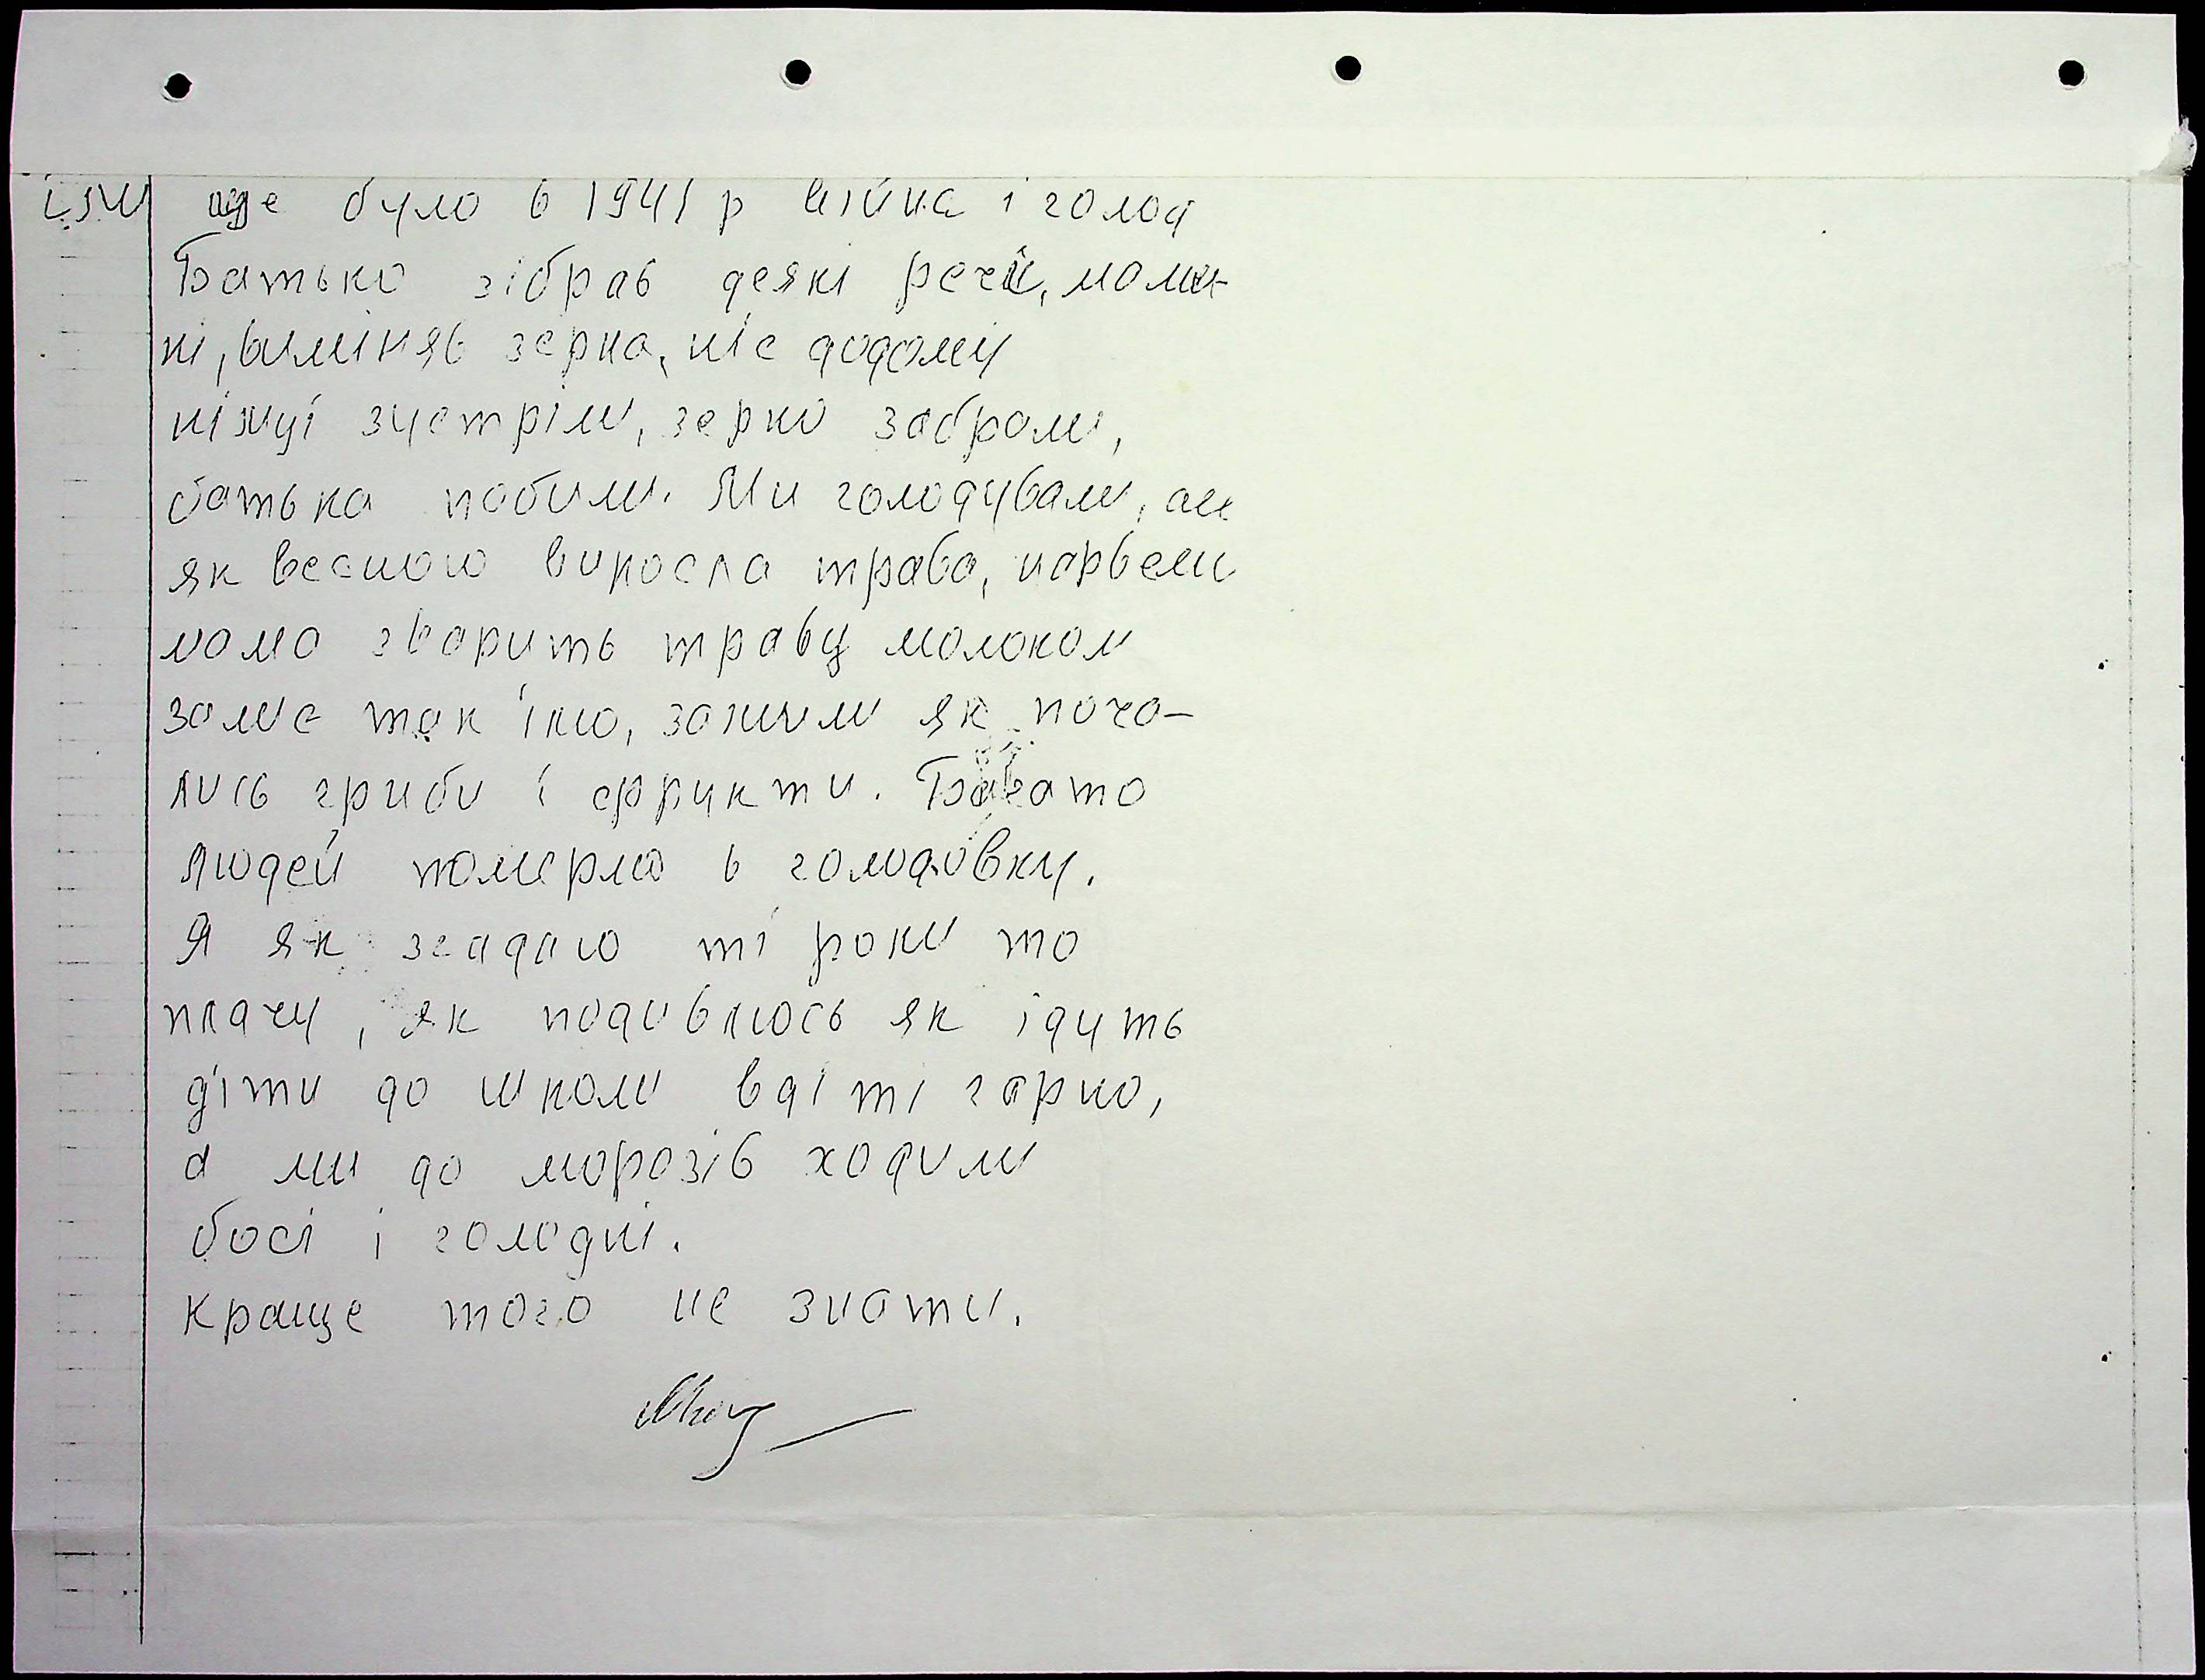 їли ще було в 1941 р війна і голод
Батько зібрав деякі речі, мами-
ні, виміняв зерна, ніс додому
німці зустріли, зерно забрали,
батька побили. Ми голодували, але
як весною виросла трава, нарвем
мама зварить траву молоком
залиє так їмо, зажили як поча-
лись гриби і фрукти. Багато
людей померло в голодовку.
Я як згадаю ті роки то
плачу, як подивлюсь як ідуть
діти до школи вдіті гарно,
а ми до морозів ходили
босі і голодні.
Краще того не знати.